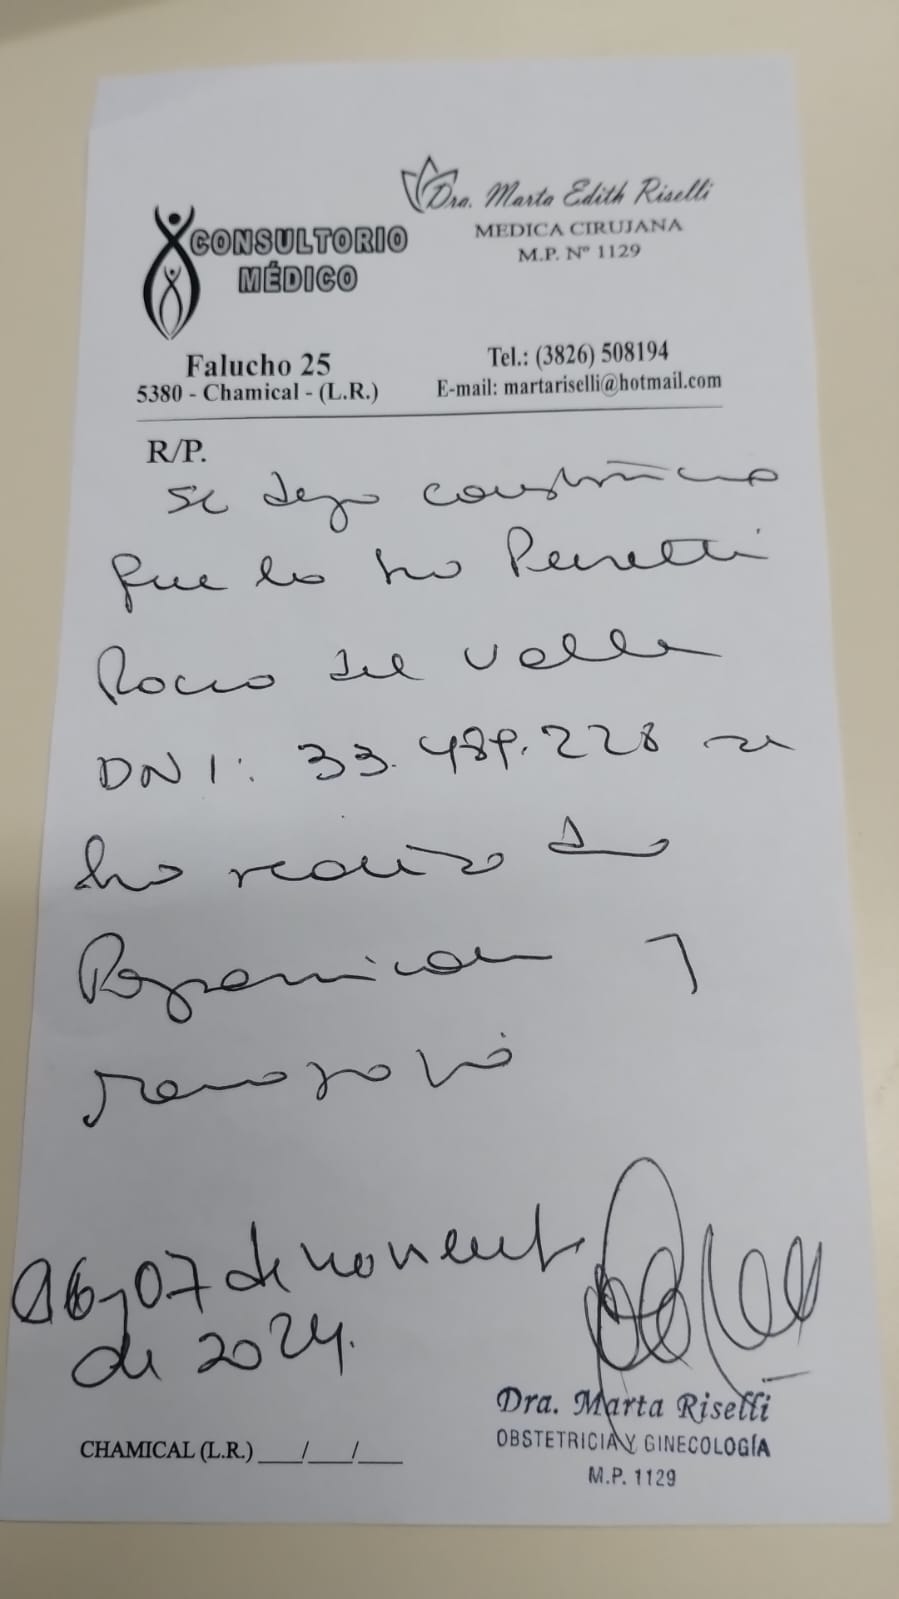 Dra. Marta Edith Riselli
MEDICA CIRUJANA
M.P. Nº 1129
CONSULTORIO
MÉDICO
Falucho 25
5380 - Chamical - (L.R.)
Tel.: (3826) 508194
E-mail: martariselli@hotmail.com
R/P.
Se deja constancia
que la Sra Peretti
Rocio del Valle
DNI: 33.489.228 se
ha realizado
Papanicolau y
06 y 07 de noviembre
de 2024.
Dra. Marta Riselli
OBSTETRICIA Y GINECOLOGÍA
M.P. 1129
CHAMICAL (L.R.) ___/___/___